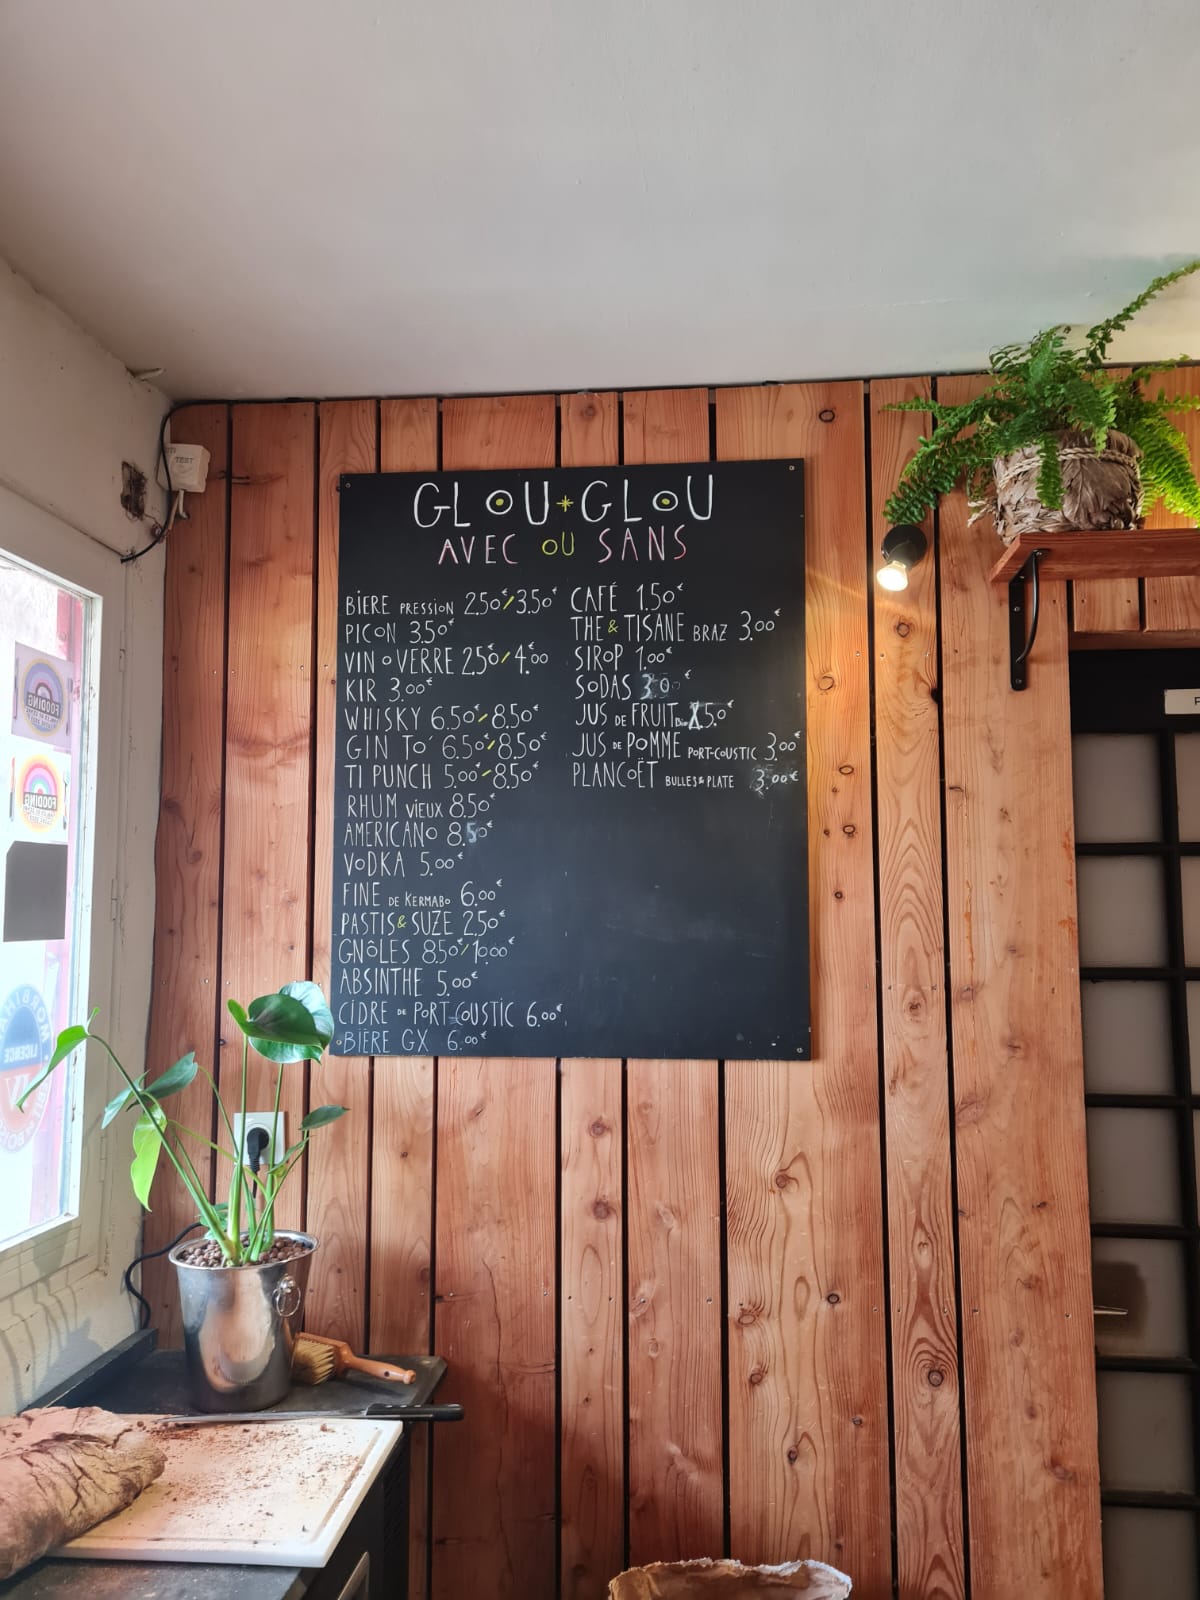 GLOU+GLOU
AVEC OU SANS
BIERE PRESSION 2.50€/3.50€
PICON 3.50€
VIN O VERRE 2.50€/4.00
KIR 3.00€
WHISKY 6.50€/8.50€
GIN TO' 6.50€/8.50€
TI PUNCH 5.00€/8.50€
RHUM VIEUX 8.50€
AMERICANO 8.50€
VODKA 5.00€
FINE DE KERMABO 6.00€
PASTIS & SUZE 2.50€
GNÔLES 8.50€/10.00€
ABSINTHE 5.00€
CIDRE DE PORT-COUSTIC 6.00€
BIÈRE GX 6.00€
CAFÉ 1.50€
THE & TISANE BRAZ 3.00€
SIROP 1.00€
SODAS 3.0 €
JUS DE FRUIT .50€
JUS DE POMME PORT-COUSTIC 3.00€
PLANCOËT BULLES & PLATE 3.00€
TEST
FOODING
FOODING
LICENCE
IV